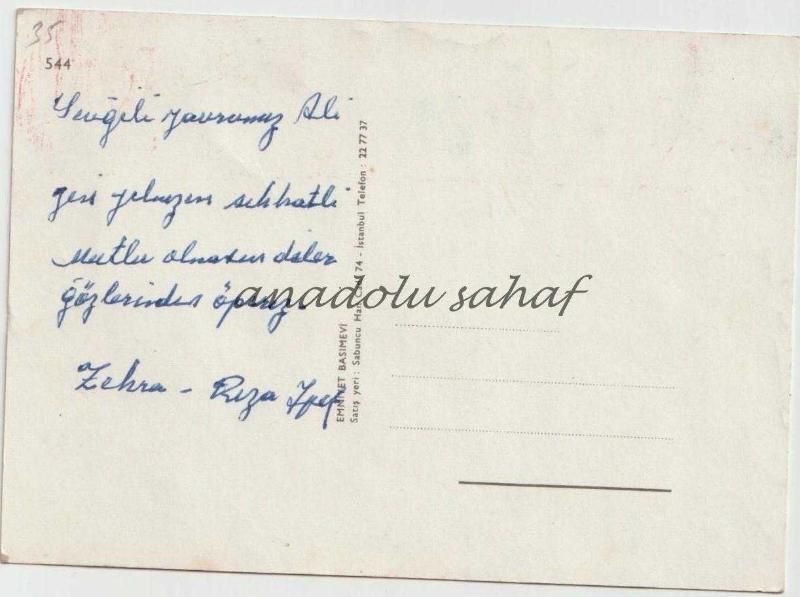 35
544
Sevgili yavrumuz Ali
yeni yılınızın sıhhatli
mutlu olmasını diler
gözlerinden öperiz.
Zehra - Rıza İpek
EMNİYET BASIMEVİ
Satış yeri : Sabuncu Han Cad. 74 - İstanbul Telefon : 22 77 37
anadolu sahaf